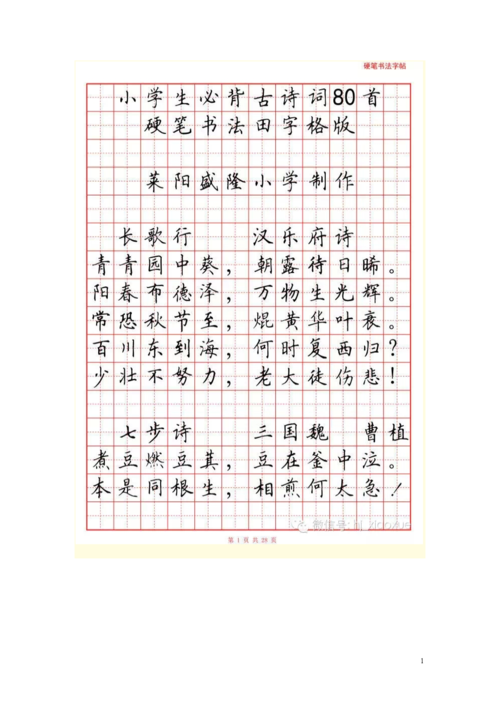 硬笔书法字帖
小学生必背古诗词80首
硬笔书法田字格版
莱阳盛隆小学制作
长歌行 汉乐府诗
青青园中葵，朝露待日晞。
阳春布德泽，万物生光辉。
常恐秋节至，焜黄华叶衰。
百川东到海，何时复西归？
少壮不努力，老大徒伤悲！
七步诗 三国魏 曹植
煮豆燃豆萁，豆在釜中泣。
本是同根生，相煎何太急！
微信号: bj_xiaoxue
第 1 页 共 28 页
1